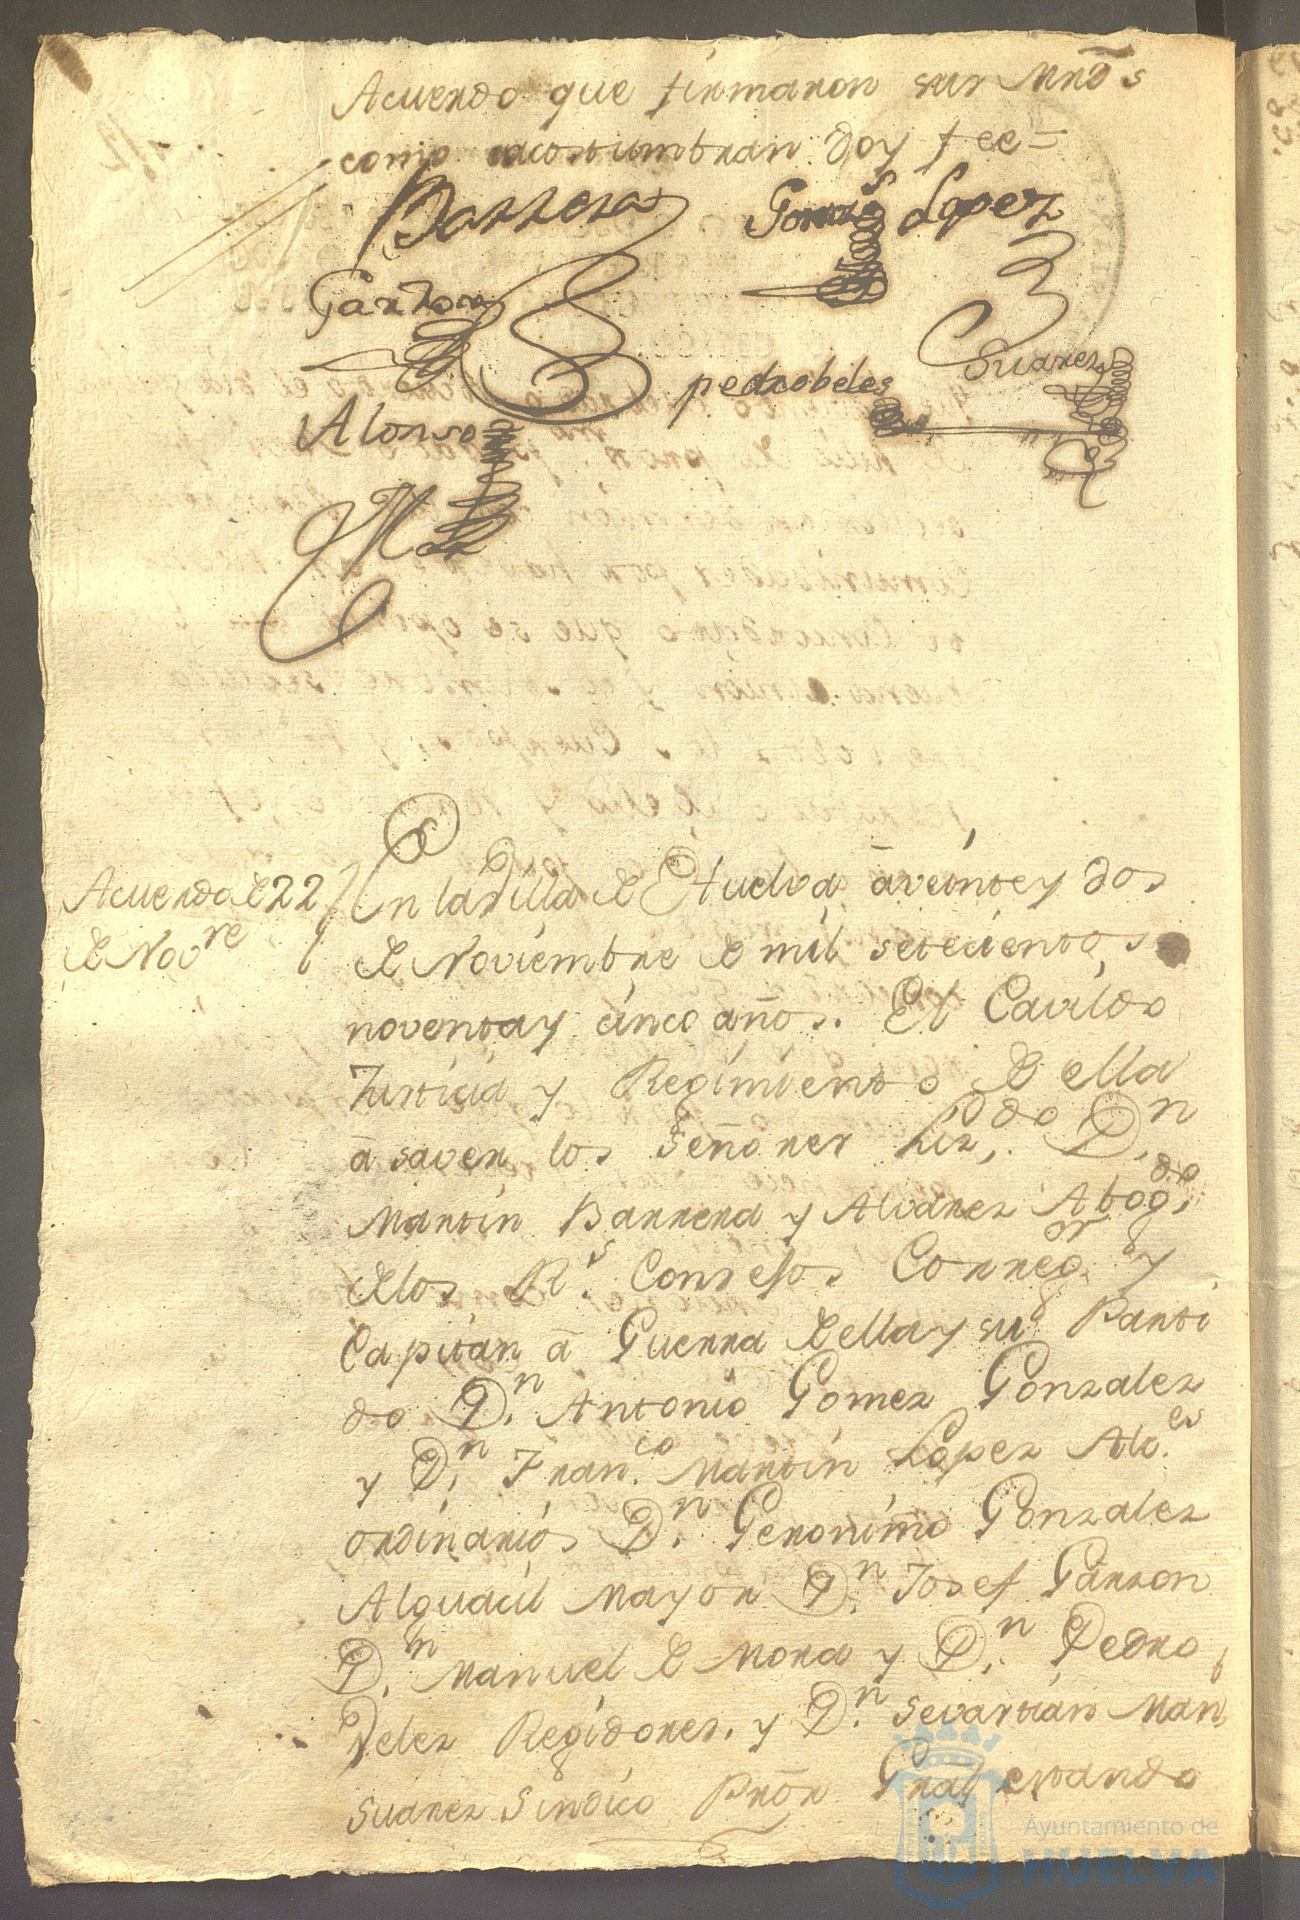 Acuerdo que firmaron sus Mrds
como acostumbran doy fee=
Barrera Gomz Lopez
Garzon
Suarez
pedrobeles
Alonso
Acuerdo de 22
de Novre
En la Villa de Huelva à veinte y dos
de Noviembre de mil setecientos
noventa y cinco años. El Cavildo
Justicia y Regimiento de ella
à saver los señores Liz.do D.n
Martin Barrera y Alvarez Abog.do
de los R.s Consejos Correg.or y
Capitan à Guerra de ella y su Parti
do D.n Antonio Gomez Gonzalez
y D.n Fran.co Martin Lopez Alc.es
ordinarios D.n Geronimo Gonzalez
Alguacil mayor D.n Josef Garzon
D.n Manuel de Mora y D.n Pedro
Velez Regidores. y D.n Sevastian Mar
Suarez Sindico Prōr Gral estando
Ayuntamiento de
HUELVA